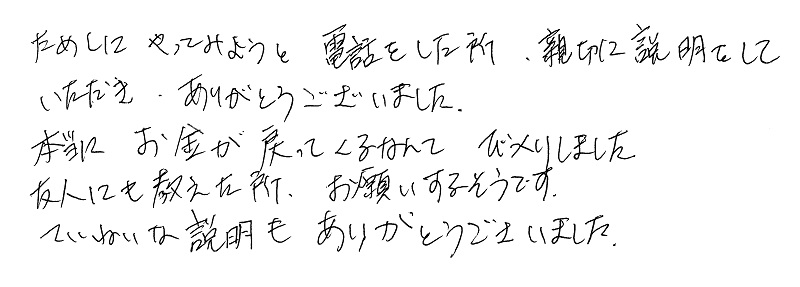 ためしに やってみようと 電話をした所、親切に説明をして
いただき、ありがとうございました。
本当に お金が戻ってくるなんて びっくりしました
友人にも教えた所、お願いするそうです。
ていねいな説明も ありがとうございました。